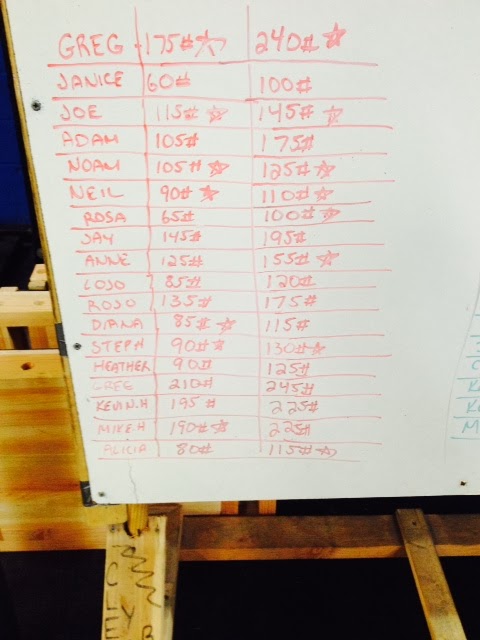 GREG 175# ☆ 240# ☆
JANICE 60# 100#
JOE 115# ☆ 145# ☆
ADAM 105# 175#
NOAM 105# ☆ 125# ☆
NEIL 90# ☆ 110# ☆
ROSA 65# 100# ☆
JAY 145# 195#
ANNE 125# 155# ☆
LOJO 85# 120#
ROJO 135# 175#
DIANA 85# ☆ 115#
STEPH 90# ☆ 130# ☆
HEATHER 90# 125#
GREG 210# 245#
KEVIN.H 195# 225#
MIKE.H 190# ☆ 225#
ALICIA 80# 115# ☆